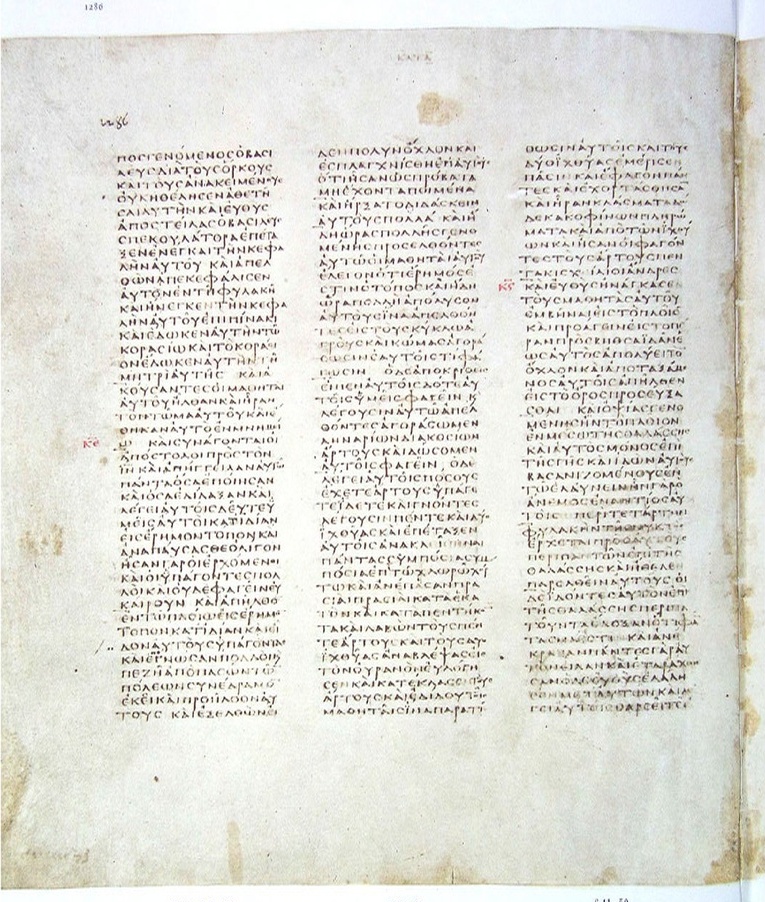 1286
ΚΑΤΑ
1286
ΠΟϹΓΕΝΟΜΕΝΟϹΟΒΑϹΙ
ΛΕΥϹΔΙΑΤΟΥϹΟΡΚΟΥϹ
ΚΑΙΤΟΥϹΑΝΑΚΕΙΜΕΝΟΥϹ
ΟΥΚΗΘΕΛΗϹΕΝΑΘΕΤΗ
ϹΑΙΑΥΤΗΝΚΑΙΕΥΘΥϹ
ΑΠΟϹΤΕΙΛΑϹΟΒΑϹΙΛΕΥϹ
ϹΠΕΚΟΥΛΑΤΟΡΑΕΠΕΤΑ
ΞΕΝΕΝΕΓΚΑΙΤΗΝΚΕΦΑ
ΛΗΝΑΥΤΟΥ ΚΑΙΑΠΕΛ
ΘΩΝΑΠΕΚΕΦΑΛΙϹΕΝ
ΑΥΤΟΝΕΝΤΗΦΥΛΑΚΗ
ΚΑΙΗΝΕΓΚΕΝΤΗΝΚΕΦΑ
ΛΗΝΑΥΤΟΥΕΠΙΠΙΝΑΚΙ
ΚΑΙΕΔΩΚΕΝΑΥΤΗΝΤΩ
ΚΟΡΑϹΙΩΚΑΙΤΟΚΟΡΑϹΙ
ΟΝΕΔΩΚΕΝΑΥΤΗΝΤΗ
ΜΗΤΡΙΑΥΤΗϹ ΚΑΙΑ
ΚΟΥϹΑΝΤΕϹΟΙΜΑΘΗΤΑΙ
ΑΥΤΟΥΗΛΘΑΝΚΑΙΗΡΑΝ
ΤΟΠΤΩΜΑΑΥΤΟΥΚΑΙΕ
ΘΗΚΑΝΑΥΤΟΕΝΜΝΗΜΙ
ΚΕ
Ω ΚΑΙϹΥΝΑΓΟΝΤΑΙΟΙ
ΑΠΟϹΤΟΛΟΙΠΡΟϹΤΟΝ
ΙΝΚΑΙΑΠΗΓΓΕΙΛΑΝΑΥΤΩ
ΠΑΝΤΑΟϹΑΕΠΟΙΗϹΑΝ
ΚΑΙΟϹΑΕΔΙΔΑΞΑΝΚΑΙ
ΛΕΓΕΙΑΥΤΟΙϹΔΕΥΤΕΥ
ΜΕΙϹΑΥΤΟΙΚΑΤΙΔΙΑΝ
ΕΙϹΕΡΗΜΟΝΤΟΠΟΝΚΑΙ
ΑΝΑΠΑΥϹΑϹΘΕΟΛΙΓΟΝ
ΗϹΑΝΓΑΡΟΙΕΡΧΟΜΕΝΟΙ
ΚΑΙΟΙΥΠΑΓΟΝΤΕϹΠΟΛ
ΛΟΙΚΑΙΟΥΔΕΦΑΓΕΙΝΕΥ
ΚΑΙΡΟΥΝ ΚΑΙΑΠΗΛΘΟΝ
ΕΝΤΩΠΛΟΙΩΕΙϹΕΡΗΜΟΝ
ΤΟΠΟΝΚΑΤΙΔΙΑΝΚΑΙΕΙ
ΔΟΝΑΥΤΟΥϹΥΠΑΓΟΝΤΑϹ
ΚΑΙΕΓΝΩϹΑΝΠΟΛΛΟΙΚΑΙ
ΠΕΖΗΑΠΟΠΑϹΩΝΤΩΝ
ΠΟΛΕΩΝϹΥΝΕΔΡΑΜΟΝ
ΕΚΕΙΚΑΙΠΡΟΗΛΘΟΝΑΥ
ΤΟΥϹ ΚΑΙΕΞΕΛΘΩΝΕΙ
ΔΕΝΠΟΛΥΝΟΧΛΟΝΚΑΙ
ΕϹΠΛΑΓΧΝΙϹΘΗΕΠΑΥΤΟΥϹ
ΟΤΙΗϹΑΝΩϹΠΡΟΒΑΤΑ
ΜΗΕΧΟΝΤΑΠΟΙΜΕΝΑ
ΚΑΙΗΡΞΑΤΟΔΙΔΑϹΚΕΙΝ
ΑΥΤΟΥϹΠΟΛΛΑ ΚΑΙΗ
ΔΗΩΡΑϹΠΟΛΛΗϹΓΕΝΟ
ΜΕΝΗϹΠΡΟϹΕΛΘΟΝΤΕϹ
ΑΥΤΩΟΙΜΑΘΗΤΑΙΑΥΤΟΥ
ΕΛΕΓΟΝΟΤΙΕΡΗΜΟϹΕ
ϹΤΙΝΟΤΟΠΟϹΚΑΙΗΔΗ
ΩΡΑΠΟΛΛΗΑΠΟΛΥϹΟΝ
ΑΥΤΟΥϹΙΝΑΑΠΕΛΘΟΝ
ΤΕϹΕΙϹΤΟΥϹΚΥΚΛΩΑ
ΓΡΟΥϹΚΑΙΚΩΜΑϹΑΓΟΡΑ
ϹΩϹΙΝΕΑΥΤΟΙϹΤΙΦΑ
ΓΩϹΙΝ ΟΔΕΑΠΟΚΡΙΘΕΙϹ
ΕΙΠΕΝΑΥΤΟΙϹΔΟΤΕΑΥ
ΤΟΙϹΥΜΕΙϹΦΑΓΕΙΝ Κ
ΛΕΓΟΥϹΙΝΑΥΤΩΑΠΕΛ
ΘΟΝΤΕϹΑΓΟΡΑϹΩΜΕΝ
ΔΗΝΑΡΙΩΝΔΙΑΚΟϹΙΩΝ
ΑΡΤΟΥϹΚΑΙΔΩϹΟΜΕΝ
ΑΥΤΟΙϹΦΑΓΕΙΝ ΟΔΕ
ΛΕΓΕΙΑΥΤΟΙϹΠΟϹΟΥϹ
ΕΧΕΤΕΑΡΤΟΥϹΥΠΑΓΕ
ΤΕΙΔΕΤΕΚΑΙΓΝΟΝΤΕϹ
ΛΕΓΟΥϹΙΝΠΕΝΤΕΚΑΙΔΥΟ
ΙΧΘΥΑϹΚΑΙΕΠΕΤΑΞΕΝ
ΑΥΤΟΙϹΑΝΑΚΛΙΘΗΝΑΙ
ΠΑΝΤΑϹϹΥΜΠΟϹΙΑϹΥΜ
ΠΟϹΙΑΕΠΙΤΩΧΛΩΡΩΧΟΡ
ΤΩΚΑΙΑΝΕΠΕϹΑΝΠΡΑ
ϹΙΑΙΠΡΑϹΙΑΙΚΑΤΑΕΚΑ
ΤΟΝΚΑΙΚΑΤΑΠΕΝΤΗΚΟΝ
ΤΑΚΑΙΛΑΒΩΝΤΟΥϹΠΕΝ
ΤΕΑΡΤΟΥϹΚΑΙΤΟΥϹΔΥΟ
ΙΧΘΥΑϹΑΝΑΒΛΕΨΑϹΕΙϹ
ΤΟΝΟΥΡΑΝΟΝΕΥΛΟΓΗ
ϹΕΝΚΑΙΚΑΤΕΚΛΑϹΕΤΟΥϹ
ΑΡΤΟΥϹΚΑΙΕΔΙΔΟΥΤΟΙϹ
ΜΑΘΗΤΑΙϹΙΝΑΠΑΡΑΤΙ
ΘΩϹΙΝΑΥΤΟΙϹΚΑΙΤΟΥϹ
ΔΥΟΙΧΘΥΑϹΕΜΕΡΙϹΕΝ
ΠΑϹΙΝ ΚΑΙΕΦΑΓΟΝΠΑΝ
ΤΕϹΚΑΙΕΧΟΡΤΑϹΘΗϹΑΝ
ΚΑΙΗΡΑΝΚΛΑϹΜΑΤΑΔΩ
ΔΕΚΑΚΟΦΙΝΩΝΠΛΗΡΩ
ΜΑΤΑΚΑΙΑΠΟΤΩΝΙΧΘΥ
ΩΝΚΑΙΗϹΑΝΟΙΦΑΓΟΝ
ΤΕϹΤΟΥϹΑΡΤΟΥϹΠΕΝ
ΤΑΚΙϹΧΕΙΛΙΟΙΑΝΔΡΕϹ
ΚϚ
ΚΑΙΕΥΘΥϹΗΝΑΓΚΑϹΕ
ΤΟΥϹΜΑΘΗΤΑϹΑΥΤΟΥ
ΕΜΒΗΝΑΙΕΙϹΤΟΠΛΟΙΟΝ
ΚΑΙΠΡΟΑΓΕΙΝΕΙϹΤΟΠΕ
ΡΑΝΠΡΟϹΒΗΘϹΑΙΔΑΝΕ
ΩϹΑΥΤΟϹΑΠΟΛΥΕΙΤΟΝ
ΟΧΛΟΝΚΑΙΑΠΟΤΑΞΑΜΕ
ΝΟϹΑΥΤΟΙϹΑΠΗΛΘΕΝ
ΕΙϹΤΟΟΡΟϹΠΡΟϹΕΥΞΑ
ϹΘΑΙ ΚΑΙΟΨΙΑϹΓΕΝΟ
ΜΕΝΗϹΗΝΤΟΠΛΟΙΟΝ
ΕΝΜΕϹΩΤΗϹΘΑΛΑϹϹΗϹ
ΚΑΙΑΥΤΟϹΜΟΝΟϹΕΠΙ
ΤΗϹΓΗϹΚΑΙΙΔΩΝΑΥΤΟΥϹ
ΒΑϹΑΝΙΖΟΜΕΝΟΥϹΕΝ
ΤΩΕΛΑΥΝΕΙΝΗΝΓΑΡΟ
ΑΝΕΜΟϹΕΝΑΝΤΙΟϹΑΥ
ΤΟΙϹ ΠΕΡΙΤΕΤΑΡΤΗΝ
ΦΥΛΑΚΗΝΤΗϹΝΥΚΤΟϹ
ΕΡΧΕΤΑΙΠΡΟϹΑΥΤΟΥϹ
ΠΕΡΙΠΑΤΩΝΕΠΙΤΗϹ
ΘΑΛΑϹϹΗϹΚΑΙΗΘΕΛΕΝ
ΠΑΡΕΛΘΕΙΝΑΥΤΟΥϹΟΙ
ΔΕΙΔΟΝΤΕϹΑΥΤΟΝΕΠΙ
ΤΗϹΘΑΛΑϹϹΗϹΠΕΡΙΠΑ
ΤΟΥΝΤΑΕΔΟΞΑΝΟΤΙΦΑΝ
ΤΑϹΜΑΕϹΤΙΝ ΚΑΙΑΝΕ
ΚΡΑΞΑΝΠΑΝΤΕϹΓΑΡΑΥ
ΤΟΝΕΙΔΑΝΚΑΙΕΤΑΡΑΧΘΗ
ϹΑΝΟΔΕΕΥΘΥϹΕΛΑΛΗ
ϹΕΝΜΕΤΑΥΤΩΝΚΑΙΛΕ
ΓΕΙΑΥΤΟΙϹΘΑΡϹΕΙΤΕ